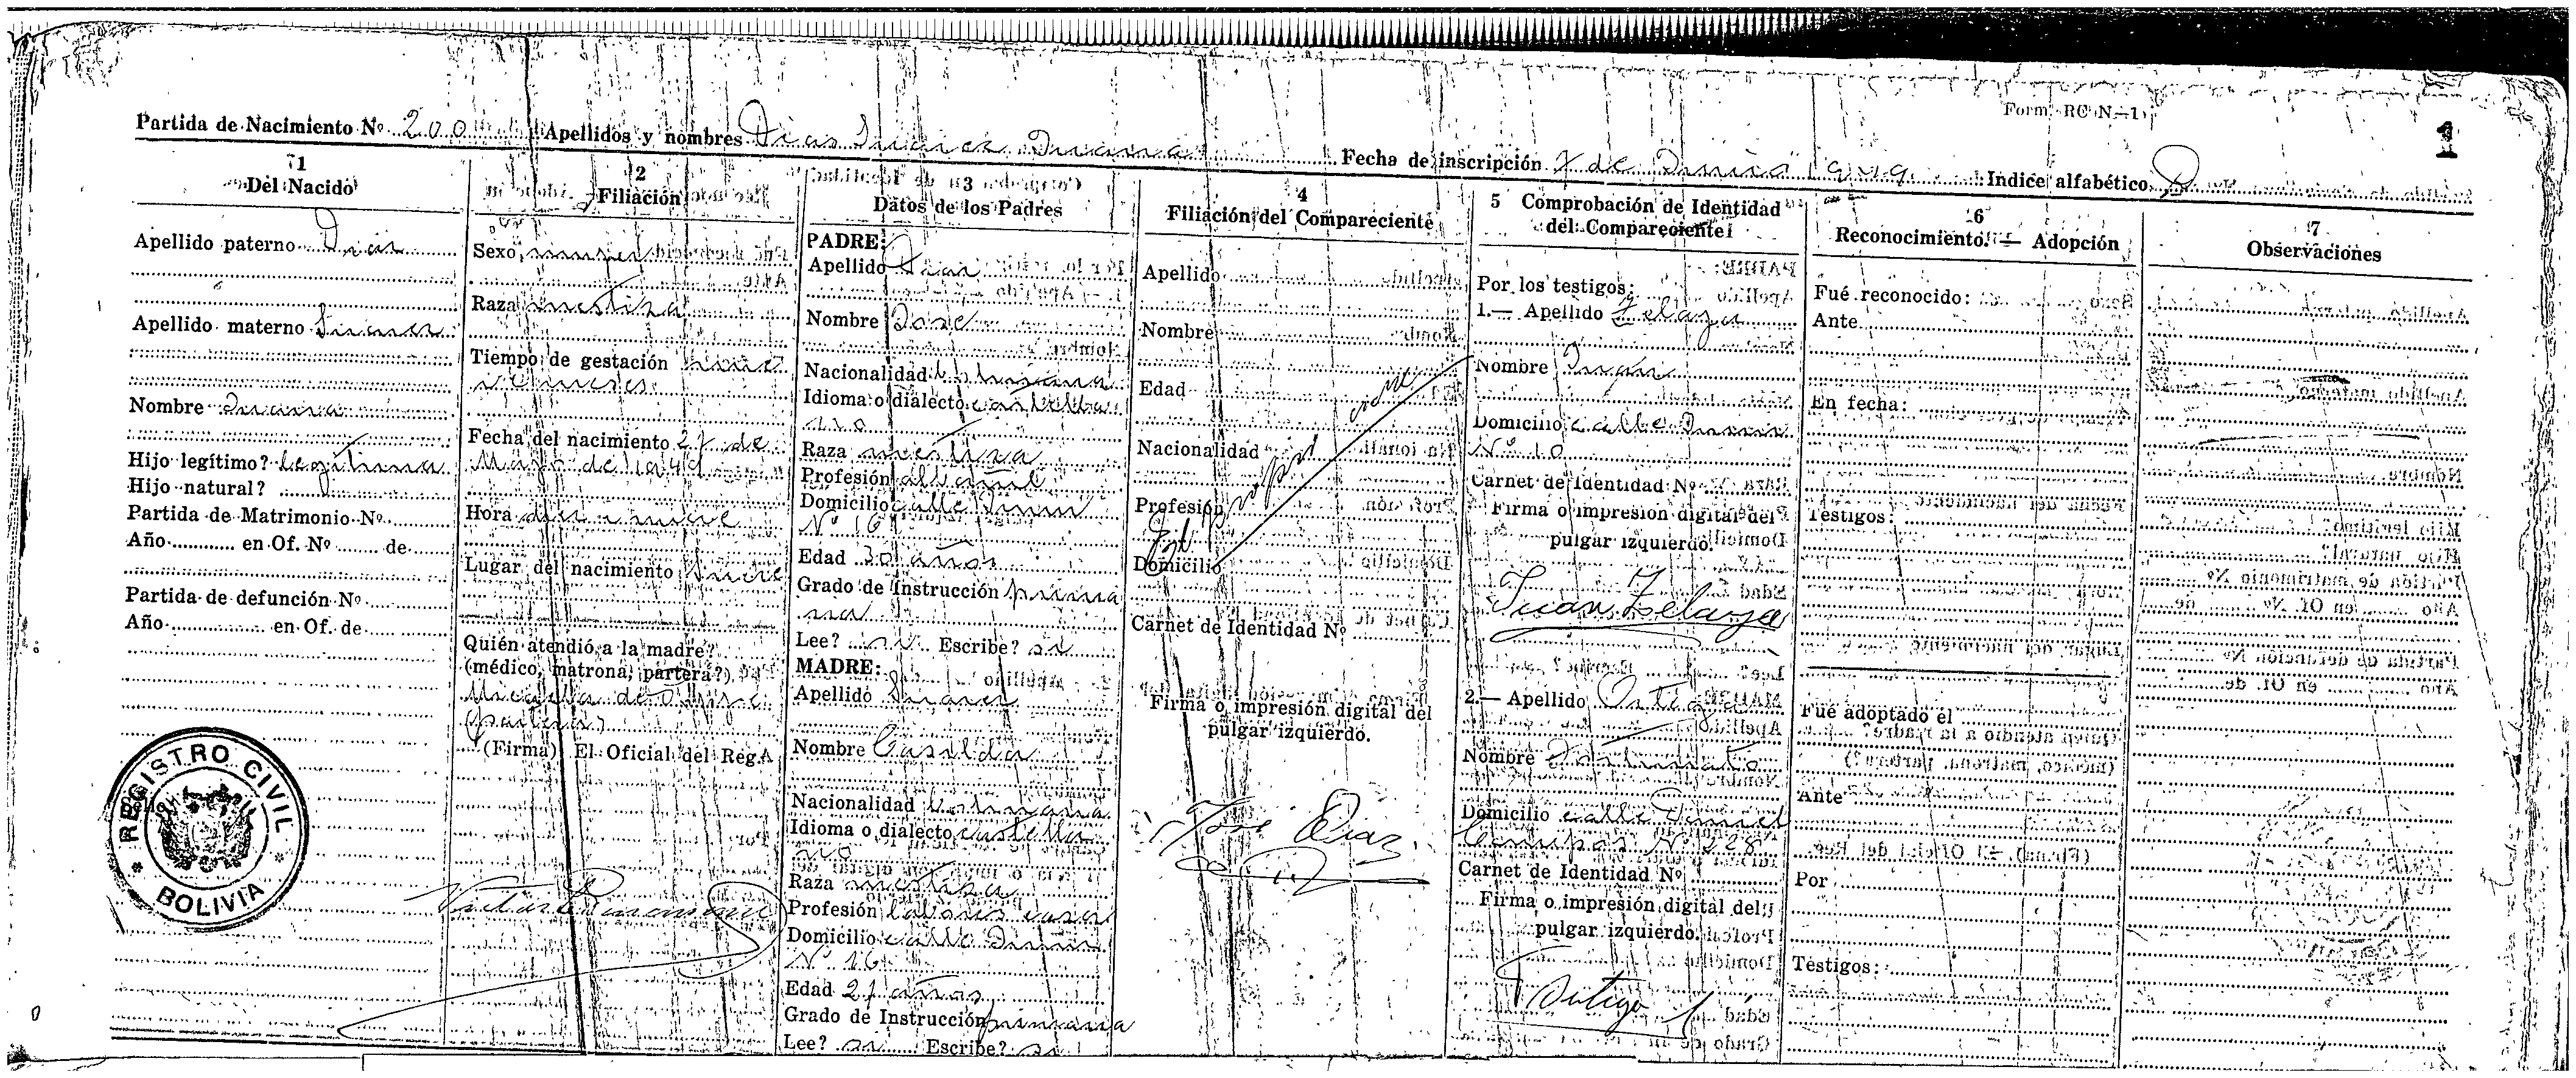 Form. RC N.—1
1
Partida de Nacimiento Nº 200 Apellidos y nombres Dias Suarez Juana Fecha de inscripción 7 de Junio 1949 Indice alfabético D
1
Del Nacido
Apellido paterno Dias
Apellido materno Suarez
Nombre Juana
Hijo legítimo? legitima
Hijo natural?
Partida de Matrimonio Nº
Año en Of. Nº de
Partida de defunción Nº
Año en Of. de
REGISTRO CIVIL
BOLIVIA
2
Filiación
Sexo mujer
Raza mestiza
Tiempo de gestación nueve
meses
Fecha del nacimiento 27 de
Mayo de 1949
Hora diez y nueve
Lugar del nacimiento Sucre
Quién atendió a la madre?
(médico, matrona, partera?)
Micaela de
(partera)
(Firma) El Oficial del Reg.
3
Datos de los Padres
PADRE:
Apellido Dias
Nombre Jose
Nacionalidad boliviana
Idioma o dialecto castella
no
Raza mestiza
Profesión albañil
Domicilio calle Junin
Nº 16
Edad 30 años
Grado de Instrucción prima
ria
Lee? si Escribe? si
MADRE:
Apellido Suarez
Nombre Casilda
Nacionalidad boliviana
Idioma o dialecto castella
no
Raza mestiza
Profesión labores casa
Domicilio calle Junin
Nº 16
Edad 21 años
Grado de Instrucción primaria
Lee? si Escribe? si
4
Filiación del Compareciente
Apellido
Nombre
Edad
Nacionalidad
Profesión
Domicilio
Carnet de Identidad Nº
Firma o impresión digital del
pulgar izquierdo.
Jose Diaz
5 Comprobación de Identidad
del Compareciente
Por los testigos:
1.— Apellido Zelaya
Nombre Juan
Domicilio calle Junin
Nº 10
Carnet de Identidad Nº
Firma o impresión digital del
pulgar izquierdo.
Juan Zelaya
2.— Apellido Ortigo
Nombre Fortunato
Domicilio calle Daniel
Campos Nº 228
Carnet de Identidad Nº
Firma o impresión digital del
pulgar izquierdo.
6
Reconocimiento. — Adopción
Fué reconocido:
Ante
En fecha:
Testigos:
Fué adoptado el
Ante
Por
Testigos:
7
Observaciones